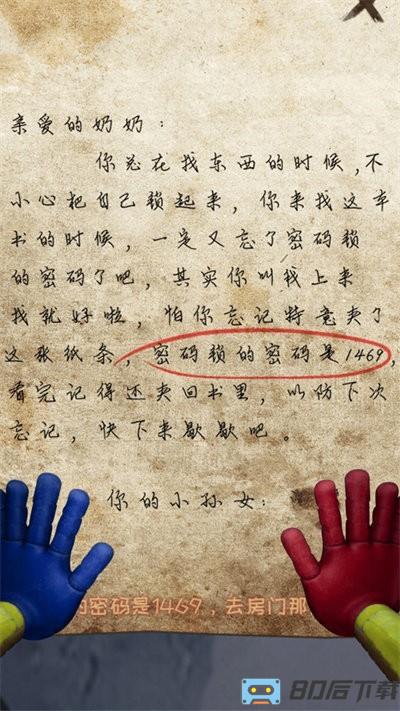 亲爱的奶奶：
你总在找东西的时候，不
小心把自己锁起来，你来找这本
书的时候，一定又忘了密码锁
的密码了吧，其实你叫我上来
找就好啦，怕你忘记特意夹了
这张纸条，密码锁的密码是1469，
看完记得还夹回书里，以防下次
忘记，快下来歇歇吧。
你的小孙女：
的密码是1469，去房门那
80后下载